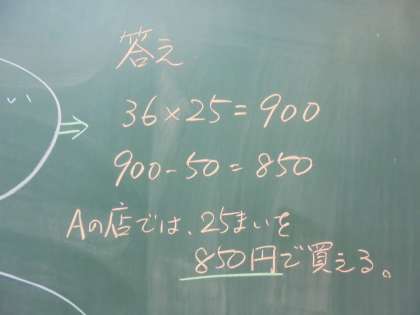 答え
い
36×25=900
900-50=850
Aの店では、25まいを
850円で買える。